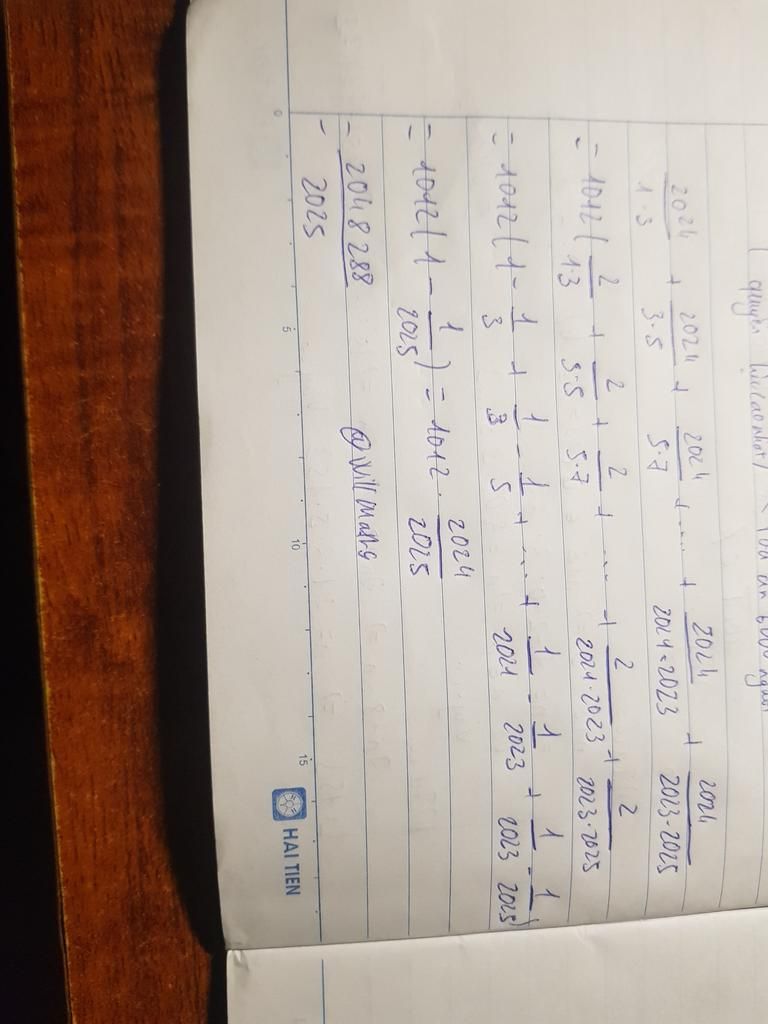 2024/1·3 + 2024/3·5 + 2024/5·7 + .... + 2024/2021·2023 + 2024/2023·2025
= 1012( 2/1·3 + 2/3·5 + 2/5·7 + .... + 2/2021·2023 + 2/2023·2025
= 1012( 1 - 1/3 + 1/3 - 1/5 + .... + 1/2021 - 1/2023 + 1/2023 - 1/2025)
= 1012( 1 - 1/2025 ) = 1012 · 2024/2025
= 2048288/2025 @Will Maths
0 5 10 15
HAI TIEN